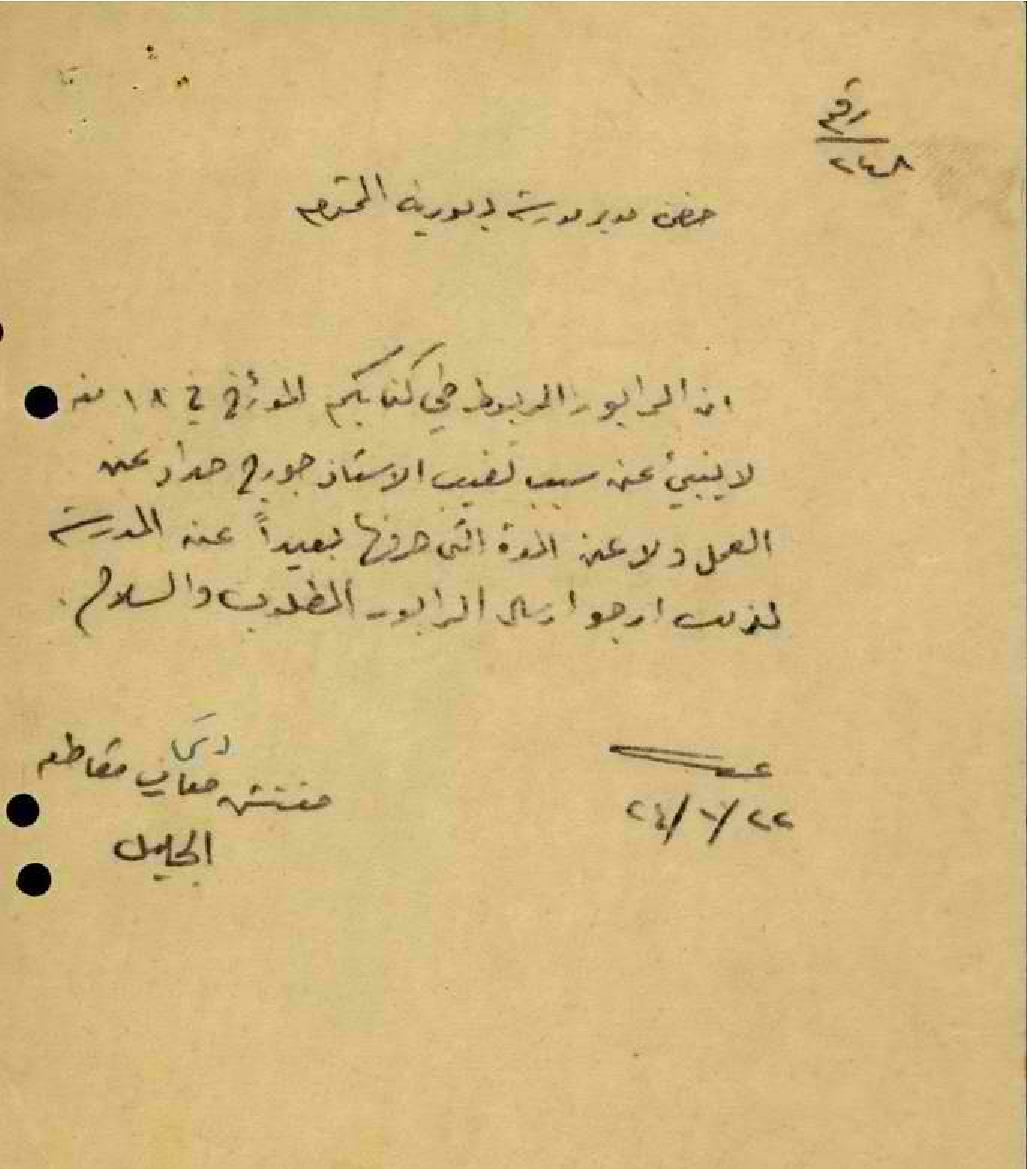 رقم
٢٤٨
حضرة مدير مدرسة دبورية المحترم
ان الرابور المربوط طي كتابكم المؤرخ في ١٨ منه
لا ينبئ عن سبب تغيب الاستاذ جورج حداد عن
العمل ولا عن المدة التي صرفها بعيداً عن المدرسة
لذلك ارجو ارسال الرابور المطلوب والسلام.
مفتش معارف مقاطعة
الجليل